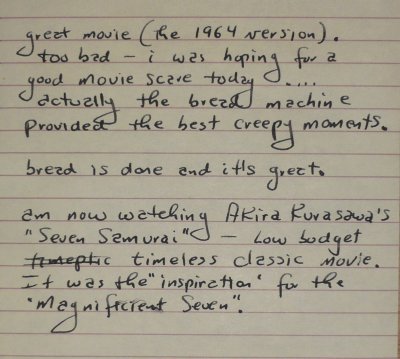 great movie (the 1964 version).
too bad - i was hoping for a
good movie scare today ....
actually the bread machine
provided the best creepy moments.
bread is done and it's great.
am now watching Akira Kurasawa's
"Seven Samurai" - Low budget
timeless classic movie.
It was the "inspiration" for the
"Magnificient Seven".